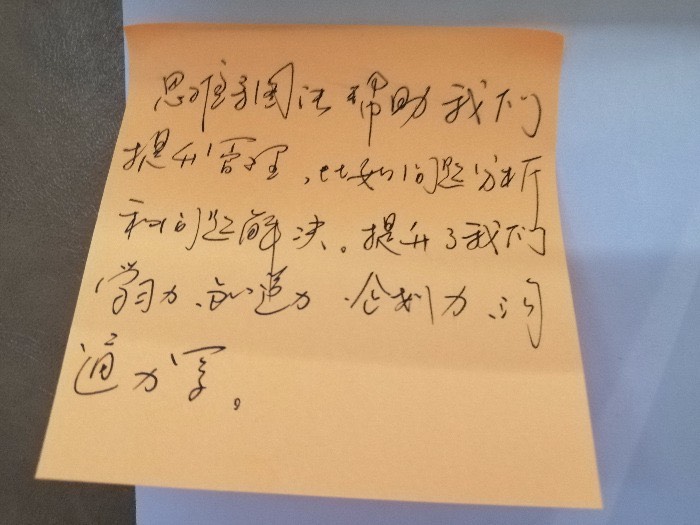 思维导图法帮助我们
提升管理,比如问题分析
和问题解决。提升了我们
学习力、创造力、企划力、沟
通力等。